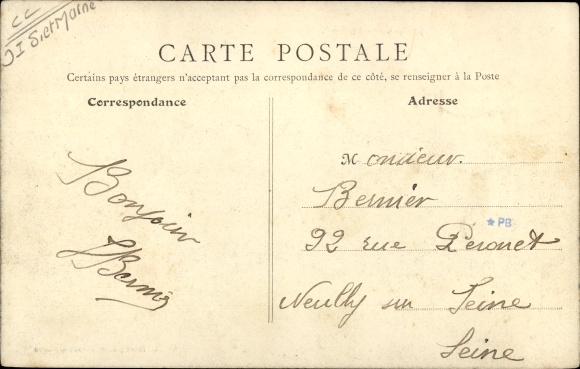 CC
JI S.et Marne
CARTE POSTALE
Certains pays étrangers n'acceptant pas la correspondance de ce côté, se renseigner à la Poste
Correspondance
Bonjour
Bernier
Adresse
Monsieur
Bernier
PB
92 rue Peronet
Neuilly sur Seine
Seine